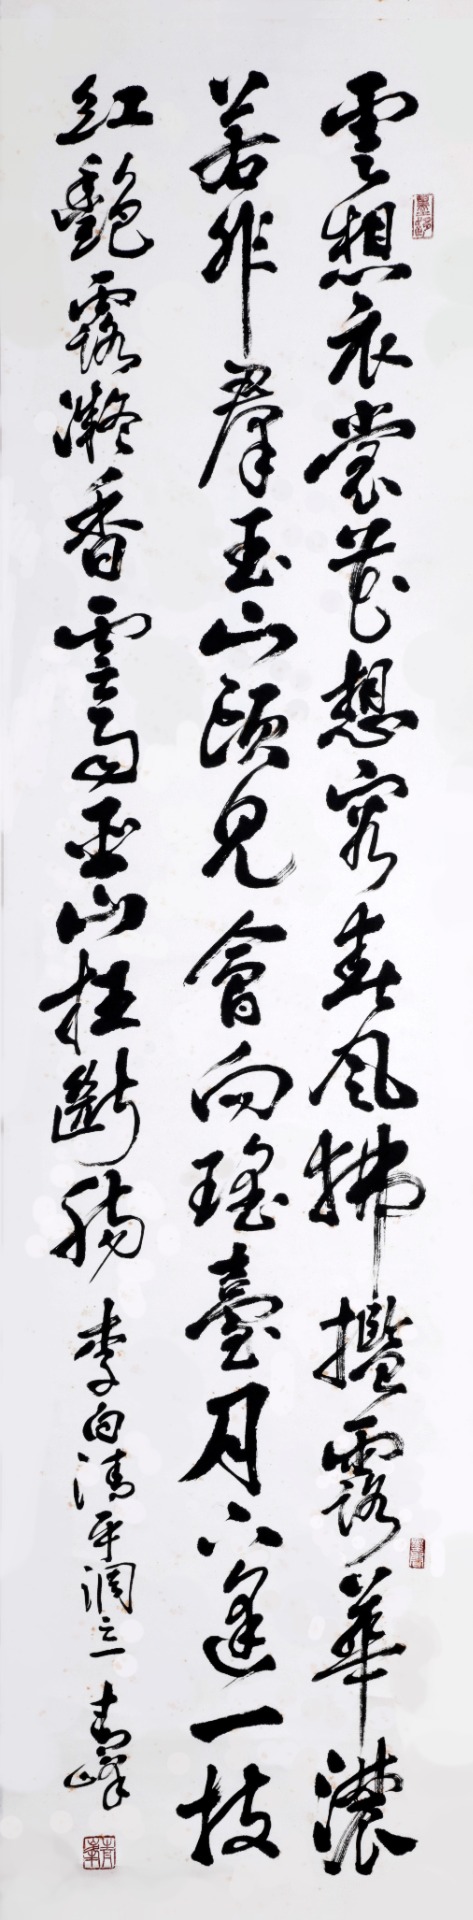 雲想衣裳花想容春風拂檻露華濃
若非羣玉山頭見會向瑤臺月下逢一枝
紅艷露凝香雲雨巫山枉斷腸 李白清平調 青峰